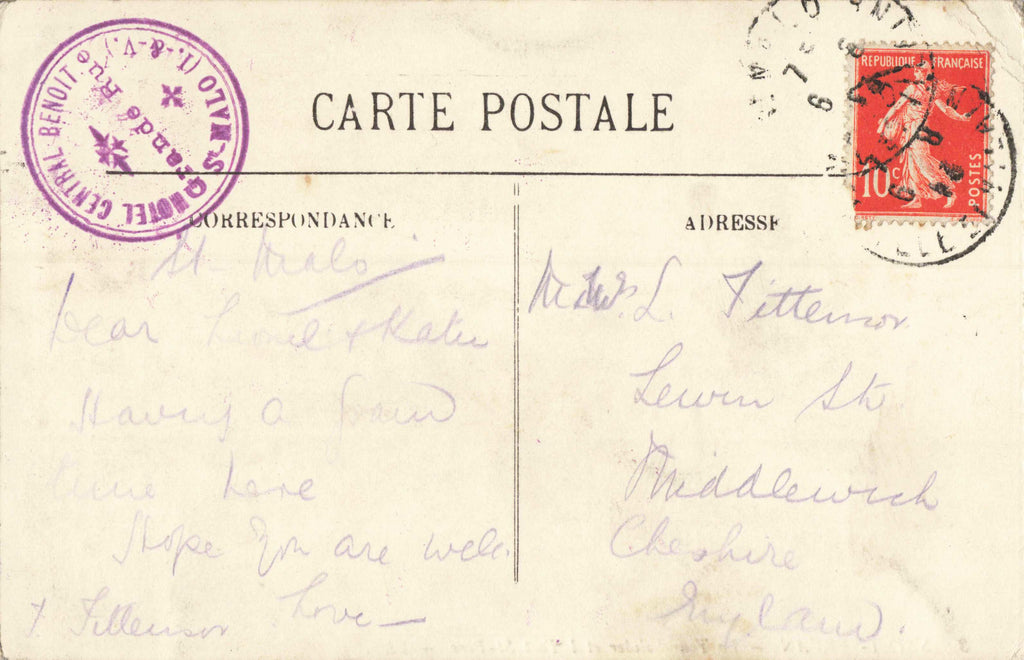 HOTEL CENTRAL BENOIT
S^T MALO (I.-&-V.)
Grande Rue
CARTE POSTALE
REPUBLIQUE FRANÇAISE
10c
POSTES
CORRESPONDANCE
ADRESSE
St Malo
Dear Lionel & Katie
Having a grand
time here
Hope you are well
Love
F Fittensor
L. Fittensor
Lewin Str
Middlewich
Cheshire
England.